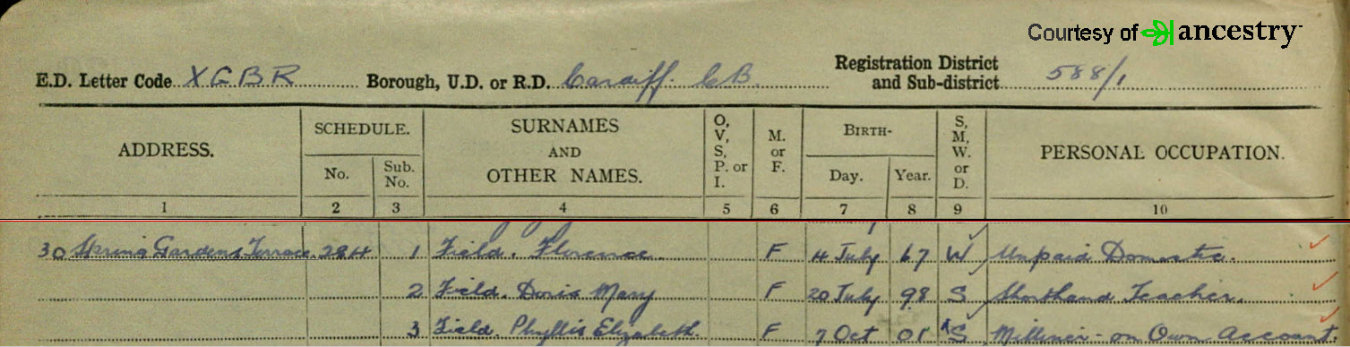 Courtesy of ancestry
E.D. Letter Code XGBR Borough, U.D. or R.D. Cardiff. C B. Registration District and Sub-district 588/1
ADDRESS. SCHEDULE. No. Sub. No. SURNAMES AND OTHER NAMES. O, V, S, P. or I. M. or F. BIRTH- Day. Year. S, M, W. or D. PERSONAL OCCUPATION.
1 2 3 4 5 6 7 8 9 10
30 Spring Gardens Terrace 284 1 Field. Florence F 4 July 67 W Unpaid Domestic.
2 Field. Doris Mary F 20 July 98 S Shorthand Teacher.
3 Field. Phyllis Elizabeth F 7 Oct 01 S Milliner - on Own Account.